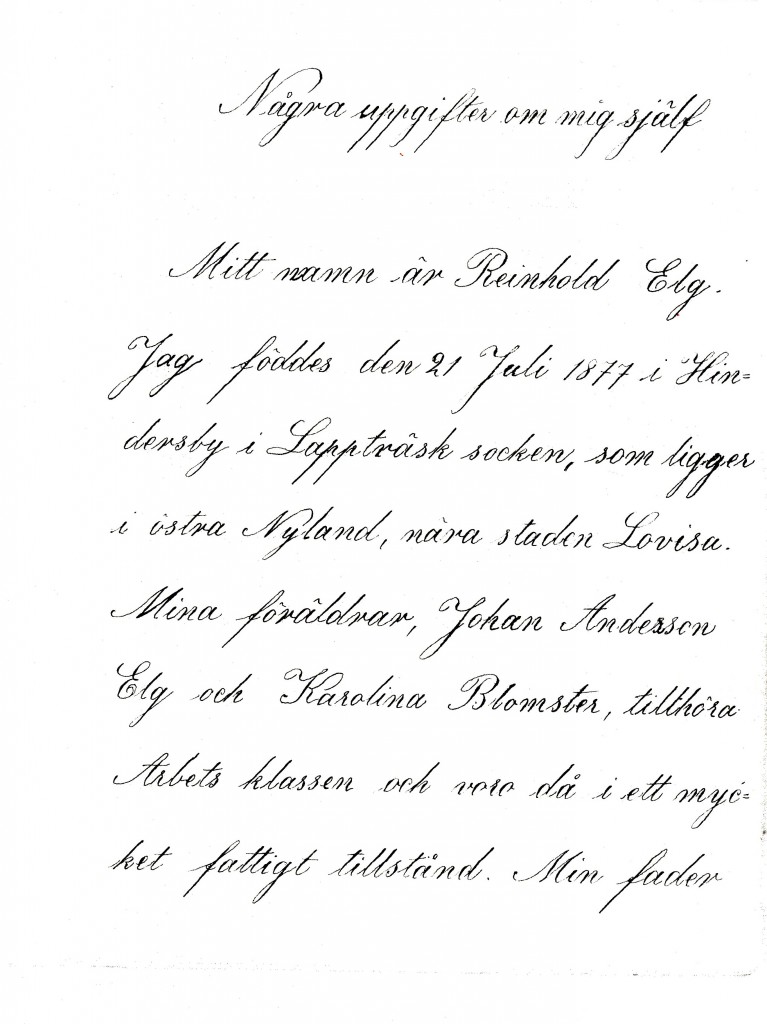 Några uppgifter om mig själf
Mitt namn är Reinhold Elg.
Jag föddes den 21 Juli 1877 i Hin=
dersby i Lappträsk socken, som ligger
i östra Nyland, nära staden Lovisa.
Mina föräldrar, Johan Andersson
Elg och Karolina Blomster, tillhöra
Arbets klassen och voro då i ett myc=
ket fattigt tillstånd. Min fader